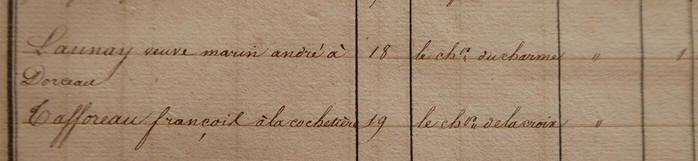 Launay veuve marin andré à 18 le chp. du charme " 1
Dorceau
Tafforeau françois à la cochetière 19 le chp. de la croix "